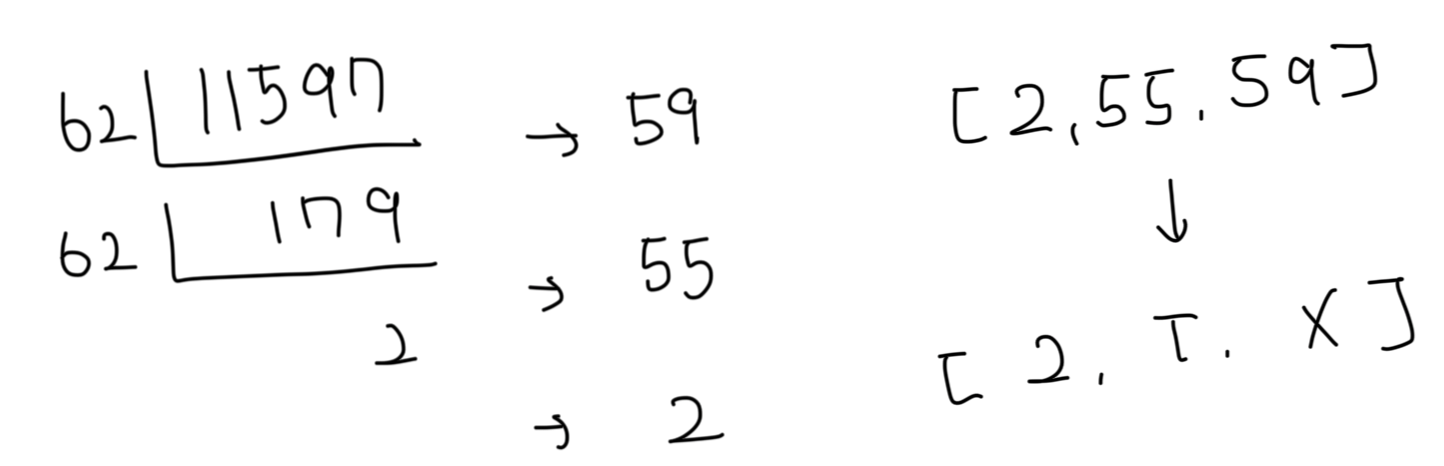 62 11597 → 59
62 179 → 55
2
→ 2
[2,55,59]
↓
[2, T, X]